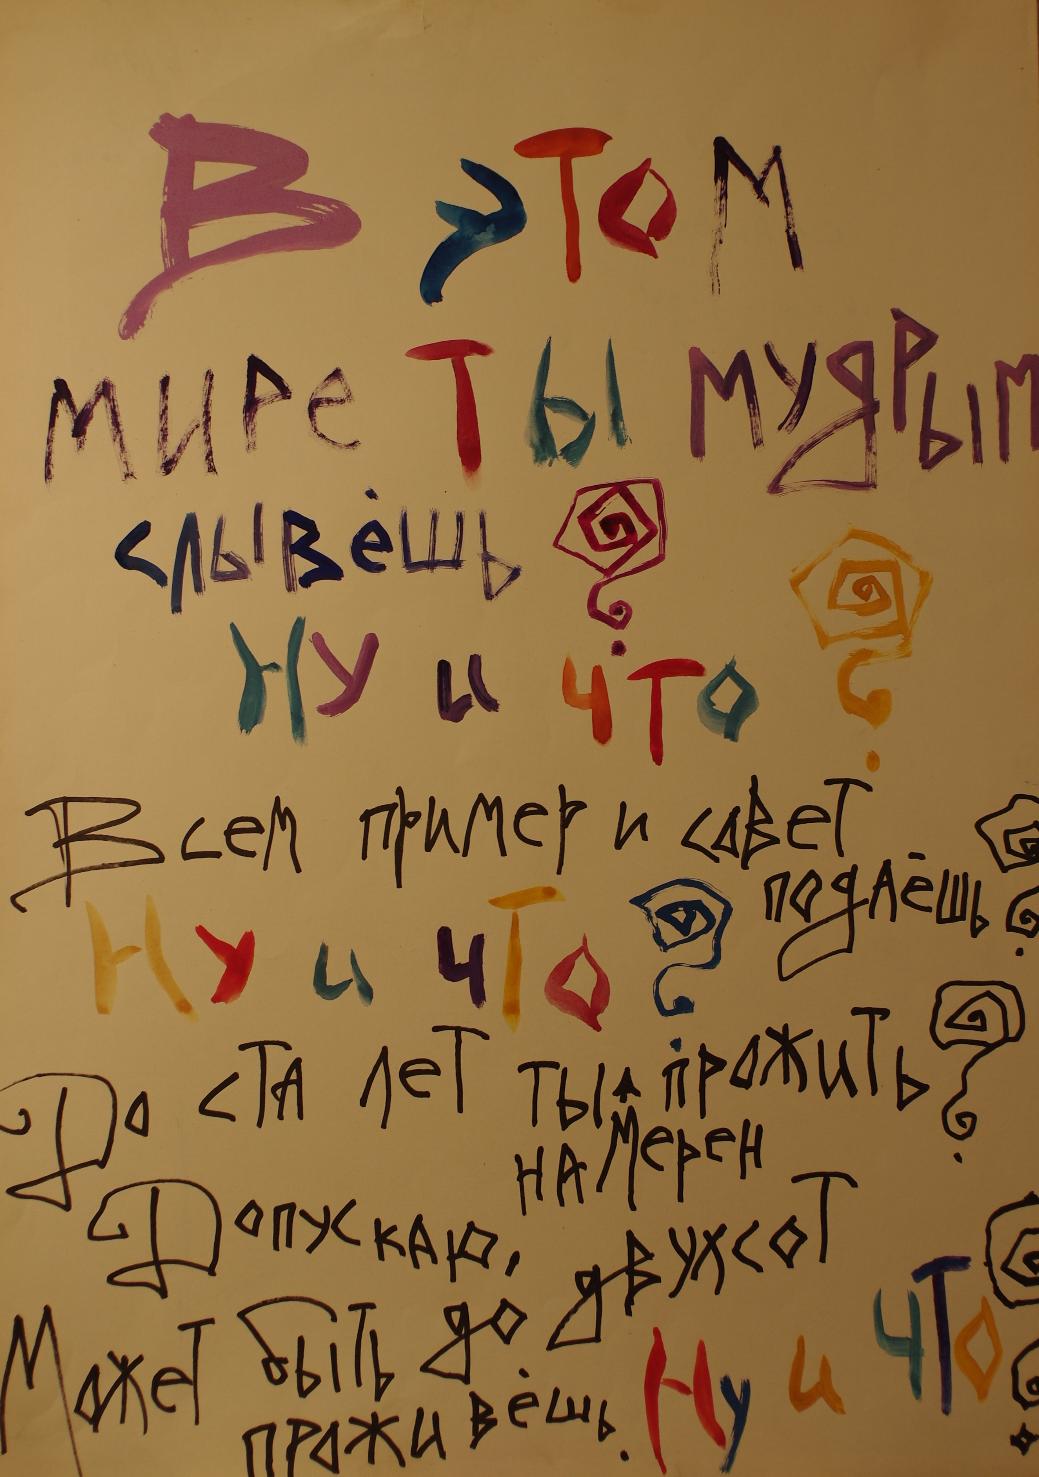 В этом
мире ты мудрым
слывёшь?
Ну и что?
Всем пример и совет
подаёшь?
Ну и что?
До ста лет ты прожить
намерен?
Допускаю,
Может быть до двухсот
проживёшь.
Ну и что?